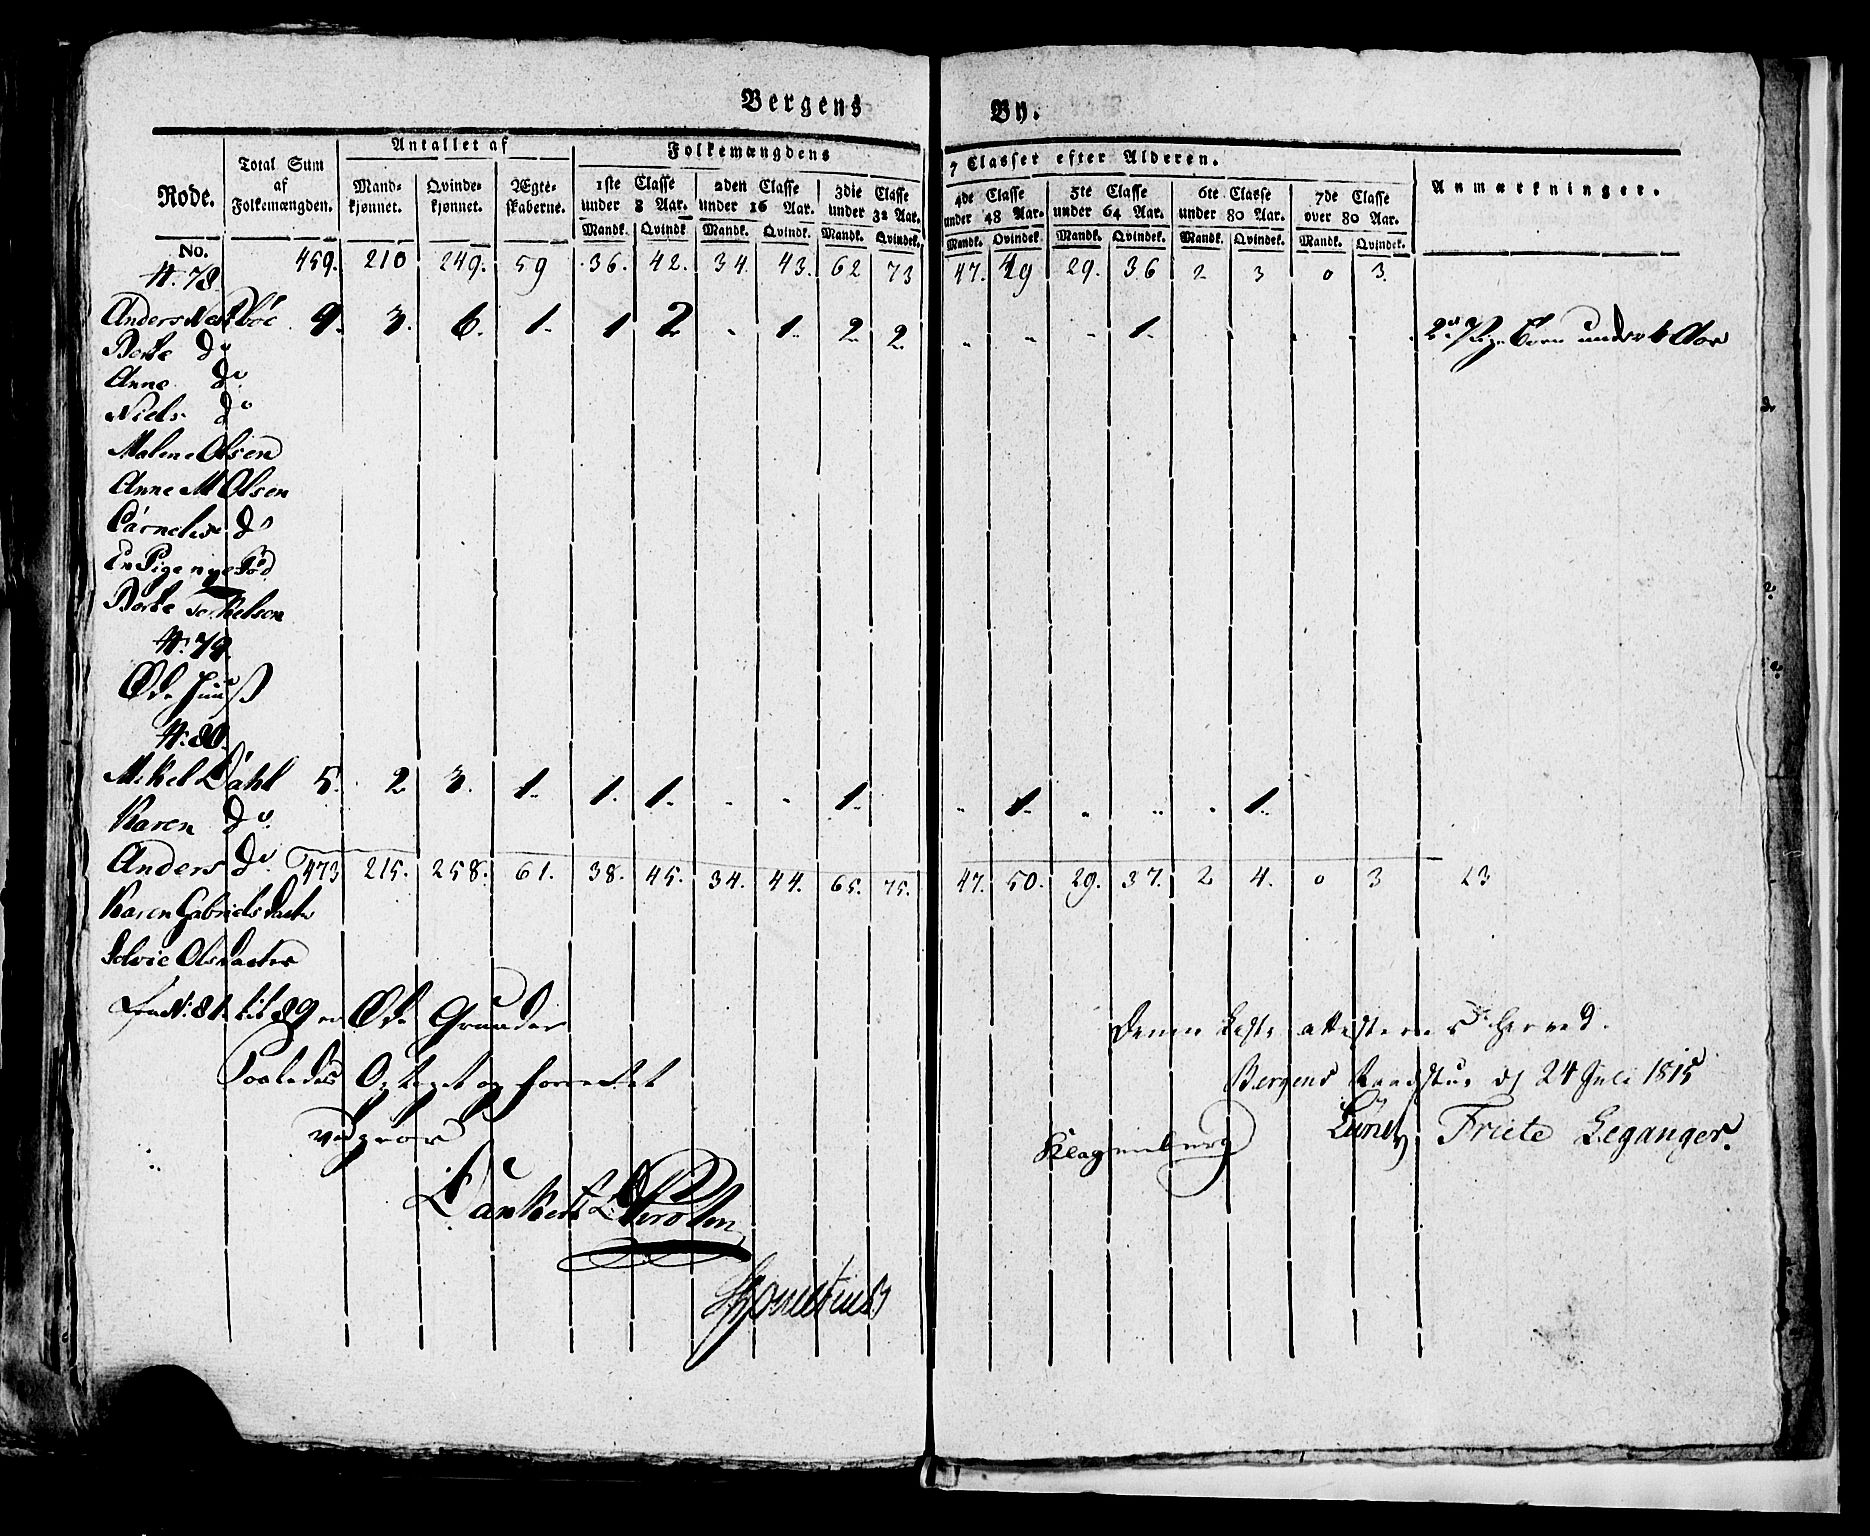 Bergens By.
Rode. Total Sum af Folkemængden. Antallet af Folkemængdens 7 Classer efter Alderen. Anmærkninger.
Mandkjønnet. Qvindekjønnet. Ægteskaberne. 1ste Classe under 8 Aar. 2den Classe under 16 Aar. 3die Classe under 32 Aar. 4de Classe under 48 Aar. 5te Classe under 64 Aar. 6te Classe under 80 Aar. 7de Classe over 80 Aar.
Mandk. Qvindk. Mandk. Qvindk. Mandk. Qvindek. Mandk. Qvindek. Mandk. Qvindek. Mandk. Qvindek. Mandk. Qvindek.
No. 459. 210 249. 59 36. 42. 34. 43. 62 73 47. 49 29. 36 2 3 0 3.
N: 78.
Anders 9. 3. 6. 1. 1 2 1. 2. 2. 1. Børn under Aar
Do
Anne Do
Niels Do
Malene Olsen
Anne M Olsen
Do
En Pige nye Fød
N: 79.
Øde Huuß
N: 80.
Mikel Dahl 5. 2 3. 1. 1. 1. 1. 1. 1.
Karen Do
Anders Do 473 215. 258. 61. 38. 45. 34. 44. 65. 75. 47. 50. 29. 37. 2 4. 0 3 23
Karen Gabrielsdatter
Olsdatter
N: 81. til 89 er Øde Grunder
Saaledes Optaget og forrettet
Denne Liste attesteres herved.
Bergens Raadstue d 24 Juli 1815
Klagenberg Friele Leganger.